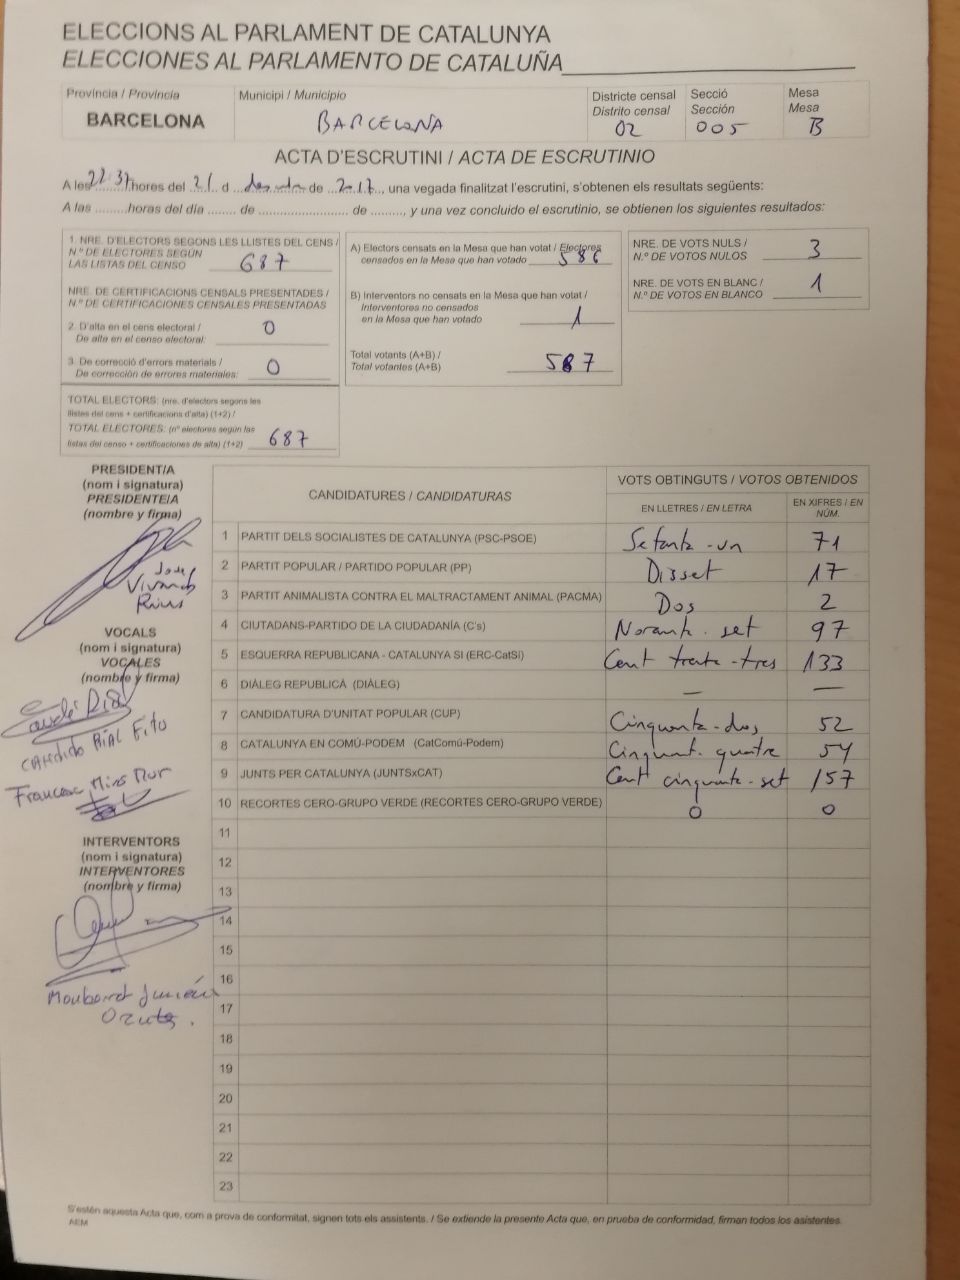 ELECCIONS AL PARLAMENT DE CATALUNYA
ELECCIONES AL PARLAMENTO DE CATALUÑA
Província / Provincia
BARCELONA
Municipi / Municipio
BARCELONA
Districte censal
Distrito censal
02
Secció
Sección
005
Mesa
Mesa
B
ACTA D'ESCRUTINI / ACTA DE ESCRUTINIO
A les 22:37 hores del 21 d desembre de 2017, una vegada finalitzat l'escrutini, s'obtenen els resultats següents:
A las ......... horas del día ........ de .......................... de .........., y una vez concluido el escrutinio, se obtienen los siguientes resultados:
1. NRE. D'ELECTORS SEGONS LES LLISTES DEL CENS /
N.º DE ELECTORES SEGÚN
LAS LISTAS DEL CENSO 687
NRE. DE CERTIFICACIONS CENSALS PRESENTADES /
N.º DE CERTIFICACIONES CENSALES PRESENTADAS
2. D'alta en el cens electoral /
De alta en el censo electoral: 0
3. De correcció d'errors materials /
De corrección de errores materiales: 0
TOTAL ELECTORS: (nre. d'electors segons les
llistes del cens + certificacions d'alta) (1+2) /
TOTAL ELECTORES: (nº electores según las
listas del censo + certificaciones de alta) (1+2) 687
A) Electors censats en la Mesa que han votat / Electores
censados en la Mesa que han votado 586
B) Interventors no censats en la Mesa que han votat /
Interventores no censados
en la Mesa que han votado 1
Total votants (A+B) /
Total votantes (A+B) 587
NRE. DE VOTS NULS /
N.º DE VOTOS NULOS 3
NRE. DE VOTS EN BLANC /
N.º DE VOTOS EN BLANCO 1
PRESIDENT/A
(nom i signatura)
PRESIDENTE/A
(nombre y firma)
Josep
Rius
VOCALS
(nom i signatura)
VOCALES
(nombre y firma)
CANdido RIAL Fito
Francesc Miros Mur
INTERVENTORS
(nom i signatura)
INTERVENTORES
(nombre y firma)
CANDIDATURES / CANDIDATURAS
VOTS OBTINGUTS / VOTOS OBTENIDOS
EN LLETRES / EN LETRA
EN XIFRES / EN NÚM.
1 PARTIT DELS SOCIALISTES DE CATALUNYA (PSC-PSOE) Setanta-un 71
2 PARTIT POPULAR / PARTIDO POPULAR (PP) Disset 17
3 PARTIT ANIMALISTA CONTRA EL MALTRACTAMENT ANIMAL (PACMA) Dos 2
4 CIUTADANS-PARTIDO DE LA CIUDADANÍA (C's) Noranta-set 97
5 ESQUERRA REPUBLICANA - CATALUNYA SI (ERC-CatSí) Cent trenta-tres 133
6 DIÀLEG REPUBLICÀ (DIÀLEG) — —
7 CANDIDATURA D'UNITAT POPULAR (CUP) Cinquanta-dos 52
8 CATALUNYA EN COMÚ-PODEM (CatComú-Podem) Cinquant. quatre 54
9 JUNTS PER CATALUNYA (JUNTSxCAT) Cent cinquanta-set 157
10 RECORTES CERO-GRUPO VERDE (RECORTES CERO-GRUPO VERDE) 0 0
11
12
13
14
15
16
17
18
19
20
21
22
23
S'estén aquesta Acta que, com a prova de conformitat, signen tots els assistents. / Se extiende la presente Acta que, en prueba de conformidad, firman todos los asistentes.
AEM